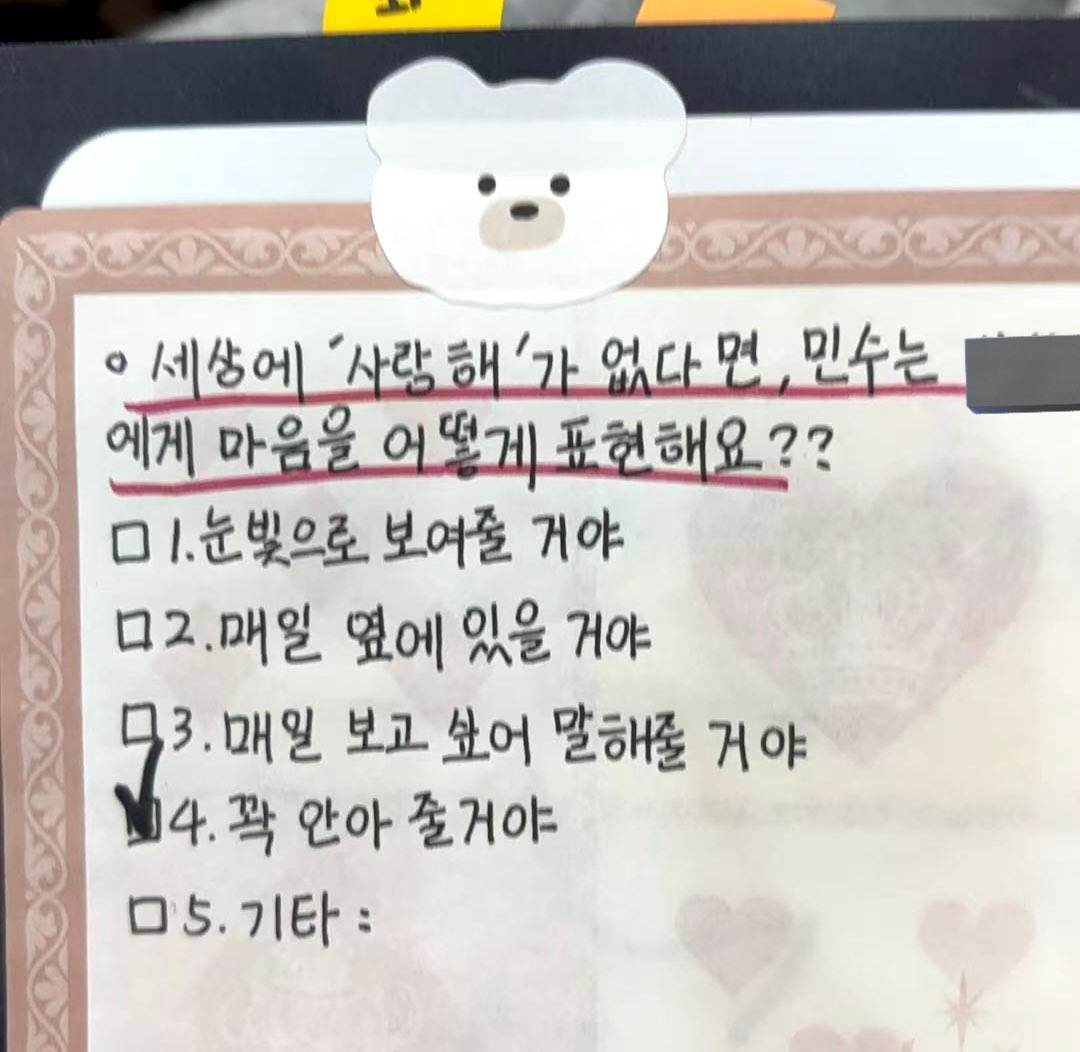 ◦ 세상에 '사랑해'가 없다면, 민수는
에게 마음을 어떻게 표현해요??
□ 1. 눈빛으로 보여줄 거야
□ 2. 매일 옆에 있을 거야
□ 3. 매일 보고 싶어 말해줄 거야
☑ 4. 꽉 안아 줄거야
□ 5. 기타 :